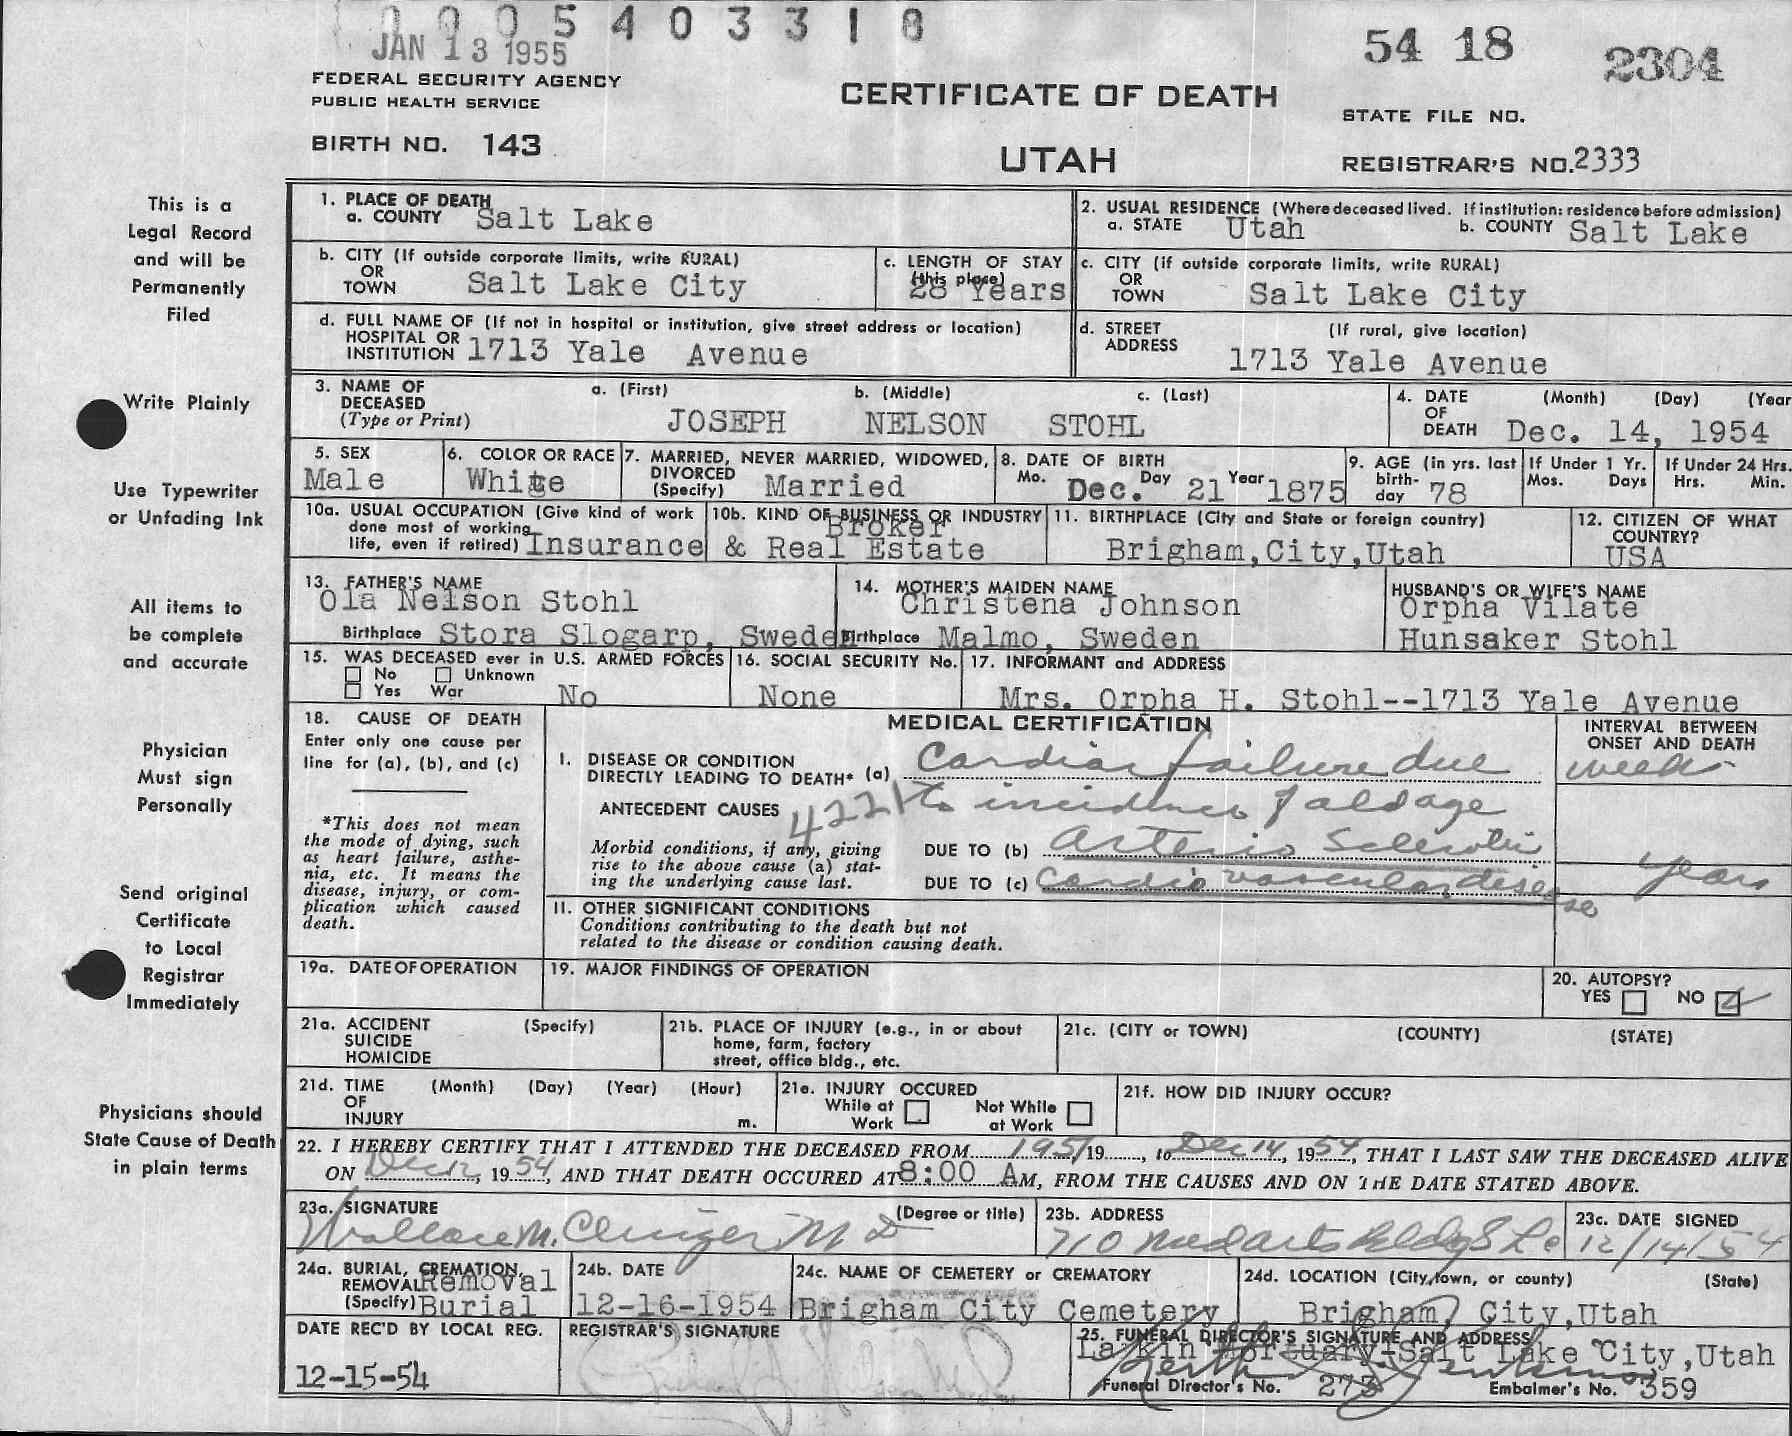 0005403318
JAN 13 1955
54 18 2304
FEDERAL SECURITY AGENCY
PUBLIC HEALTH SERVICE
CERTIFICATE OF DEATH
STATE FILE NO.
BIRTH NO. 143
UTAH
REGISTRAR'S NO. 2333
This is a
Legal Record
and will be
Permanently
Filed
Write Plainly
Use Typewriter
or Unfading Ink
All items to
be complete
and accurate
Physician
Must sign
Personally
Send original
Certificate
to Local
Registrar
Immediately
Physicians should
State Cause of Death
in plain terms
1. PLACE OF DEATH
a. COUNTY Salt Lake
2. USUAL RESIDENCE (Where deceased lived. If institution: residence before admission)
a. STATE Utah b. COUNTY Salt Lake
b. CITY (If outside corporate limits, write RURAL)
OR
TOWN Salt Lake City
c. LENGTH OF STAY
(this place)
28 Years
c. CITY (if outside corporate limits, write RURAL)
OR
TOWN Salt Lake City
d. FULL NAME OF (If not in hospital or institution, give street address or location)
HOSPITAL OR
INSTITUTION 1713 Yale Avenue
d. STREET (If rural, give location)
ADDRESS
1713 Yale Avenue
3. NAME OF a. (First) b. (Middle) c. (Last)
DECEASED
(Type or Print) JOSEPH NELSON STOHL
4. DATE (Month) (Day) (Year
OF
DEATH Dec. 14, 1954
5. SEX
Male
6. COLOR OR RACE
White
7. MARRIED, NEVER MARRIED, WIDOWED,
DIVORCED
(Specify) Married
8. DATE OF BIRTH
Mo. Dec. Day 21 Year 1875
9. AGE (in yrs. last
birth-
day 78
If Under 1 Yr.
Mos. Days
If Under 24 Hrs.
Hrs. Min.
10a. USUAL OCCUPATION (Give kind of work
done most of working
life, even if retired) Insurance
10b. KIND OF BUSINESS OR INDUSTRY
Broker
& Real Estate
11. BIRTHPLACE (City and State or foreign country)
Brigham,City,Utah
12. CITIZEN OF WHAT
COUNTRY?
USA
13. FATHER'S NAME
Ola Nelson Stohl
Birthplace Stora Slogarp, Sweden
14. MOTHER'S MAIDEN NAME
Christena Johnson
Birthplace Malmo, Sweden
HUSBAND'S OR WIFE'S NAME
Orpha Vilate
Hunsaker Stohl
15. WAS DECEASED ever in U.S. ARMED FORCES
No Unknown
Yes War No
16. SOCIAL SECURITY No.
None
17. INFORMANT and ADDRESS
Mrs. Orpha H. Stohl--1713 Yale Avenue
18. CAUSE OF DEATH
Enter only one cause per
line for (a), (b), and (c)
*This does not mean
the mode of dying, such
as heart failure, asthe-
nia, etc. It means the
disease, injury, or com-
plication which caused
death.
MEDICAL CERTIFICATION
INTERVAL BETWEEN
ONSET AND DEATH
I. DISEASE OR CONDITION
DIRECTLY LEADING TO DEATH* (a) Cardiac failure due
weeks
ANTECEDENT CAUSES 4221 to incidence of old age
Morbid conditions, if any, giving
rise to the above cause (a) stat-
ing the underlying cause last.
DUE TO (b) Arterio Sclerotic
DUE TO (c) Cardio vascular disease
years
II. OTHER SIGNIFICANT CONDITIONS
Conditions contributing to the death but not
related to the disease or condition causing death.
19a. DATE OF OPERATION
19. MAJOR FINDINGS OF OPERATION
20. AUTOPSY?
YES NO
21a. ACCIDENT (Specify)
SUICIDE
HOMICIDE
21b. PLACE OF INJURY (e.g., in or about
home, farm, factory
street, office bldg., etc.
21c. (CITY or TOWN) (COUNTY) (STATE)
21d. TIME (Month) (Day) (Year) (Hour)
OF
INJURY m.
21e. INJURY OCCURED
While at
Work
Not While
at Work
21f. HOW DID INJURY OCCUR?
22. I HEREBY CERTIFY THAT I ATTENDED THE DECEASED FROM 1951 19....., to Dec 14, 1954, THAT I LAST SAW THE DECEASED ALIVE
ON Dec 12, 1954, AND THAT DEATH OCCURED AT 8:00 AM, FROM THE CAUSES AND ON THE DATE STATED ABOVE.
23a. SIGNATURE (Degree or title)
Wallace M. Clinger M D
23b. ADDRESS
710 Med Arts Bldg S L C
23c. DATE SIGNED
12/14/54
24a. BURIAL, CREMATION,
REMOVAL Removal
(Specify) Burial
24b. DATE
12-16-1954
24c. NAME OF CEMETERY or CREMATORY
Brigham City Cemetery
24d. LOCATION (City, town, or county) (State)
Brigham, City,Utah
DATE REC'D BY LOCAL REG.
12-15-54
REGISTRAR'S SIGNATURE
25. FUNERAL DIRECTOR'S SIGNATURE AND ADDRESS
Larkin Mortuary-Salt Lake City,Utah
Funeral Director's No. 273 Embalmer's No. 359